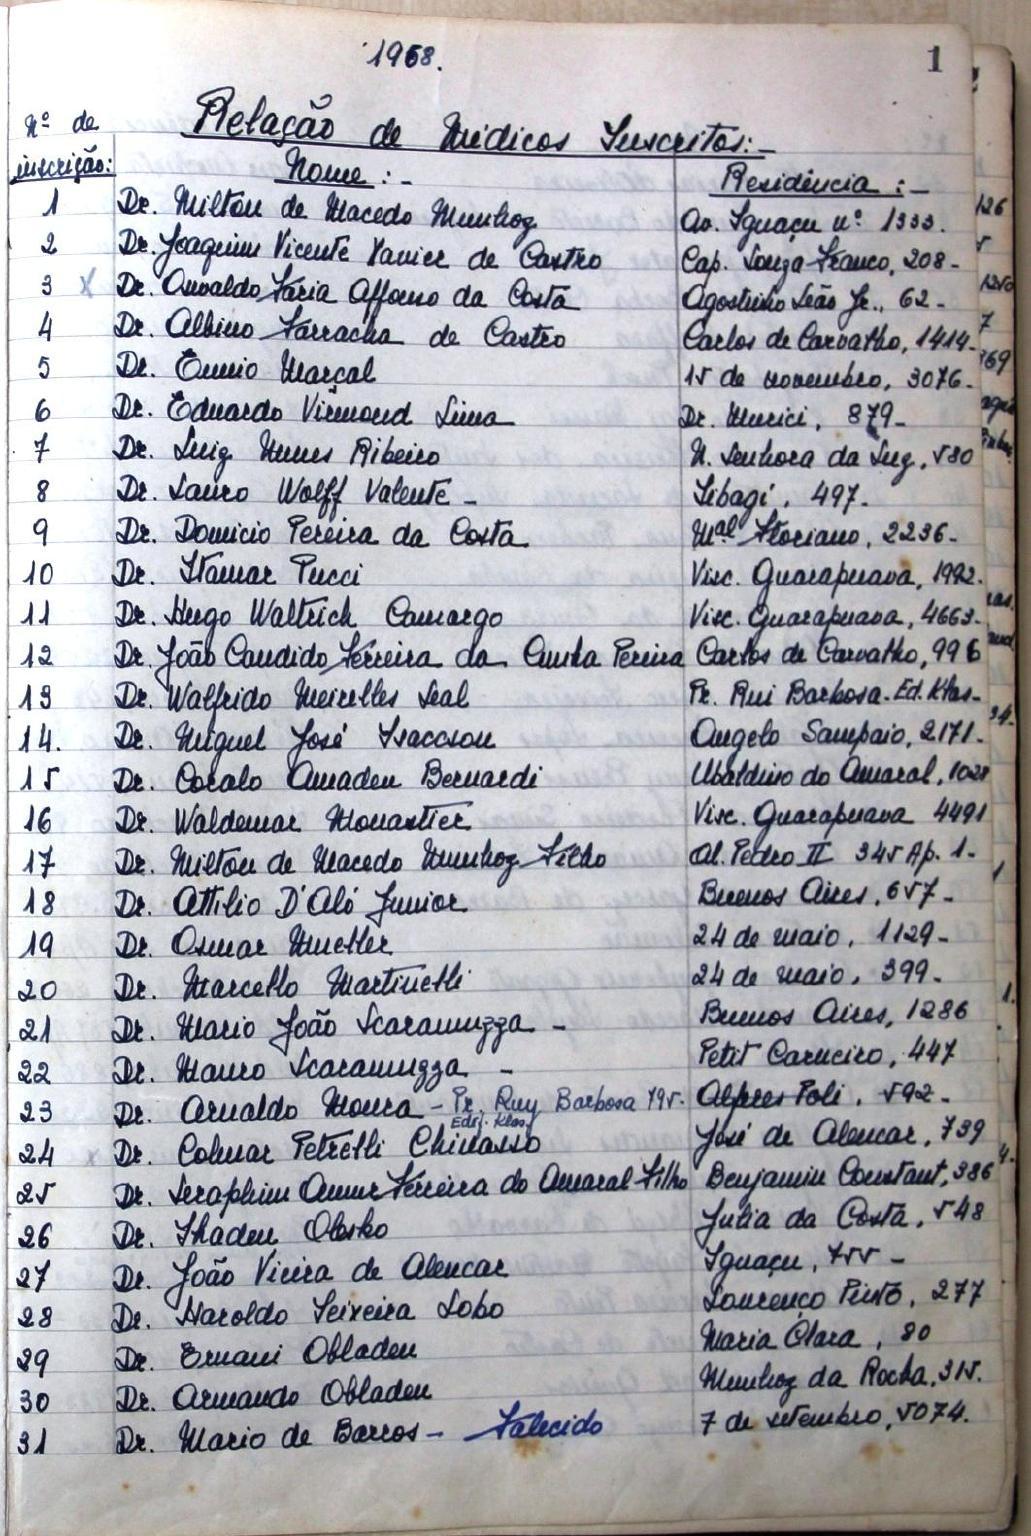 1968.
1
Nº de inscrição:
Relação de Médicos Inscritos:-
Nome:- Residência:-
1 Dr. Milton de Macedo Munhoz Av. Iguaçu nº 1333.
2 Dr. Joaquim Vicente Xavier de Castro Cap. Souza Franco, 208-
3 x Dr. Osvaldo Faria Affonso da Costa Agostinho Leão Jr., 62-
4 Dr. Albino Farracha de Castro Carlos de Carvalho, 1414-
5 Dr. Ennio Marçal 15 de novembro, 3076-
6 Dr. Eduardo Virmond Lima Dr. Murici, 879-
7 Dr. Luiz Nunes Ribeiro N. Senhora da Luz, 580
8 Dr. Lauro Wolff Valente- Tibagi, 497-
9 Dr. Domicio Pereira da Costa Mal Floriano, 2236-
10 Dr. Itamar Pucci Visc. Guarapuava, 1992-
11 Dr. Hugo Waltrich Camargo Visc. Guarapuava, 4663-
12 Dr. João Candido Ferreira da Cunha Pereira Carlos de Carvalho, 996
13 Dr. Walfrido Meirelles Leal Pr. Rui Barbosa-Ed. Klas-
14. Dr. Miguel José Isaccson Angelo Sampaio, 2171-
15 Dr. Coralo Amadeu Bernardi Ubaldino do Amaral, 1028
16 Dr. Waldemar Monastier Visc. Guarapuava 4491
17 Dr. Milton de Macedo Munhoz Filho Al. Pedro II 345 Ap. 1-
18 Dr. Attilio D'Aló Junior Buenos Aires, 657-
19 Dr. Osmar Mueller 24 de maio, 1129-
20 Dr. Marcello Martinelli 24 de maio, 399-
21 Dr. Mario João Scaramuzza - Buenos Aires, 1286
22 Dr. Mauro Scaramuzza - Petit Carneiro, 447
23 Dr. Arnaldo Moura - Pr. Ruy Barbosa 795- Alferes Poli, 592-
Edf. Klas.
24 x Dr. Colmar Petrelli Chinasso José de Alencar, 739
25 Dr. Seraphim Ferreira do Amaral Filho Benjamin Constant, 386
26 Dr. Thadeu Olesko Julia da Costa, 548
27 Dr. João Vieira de Alencar Iguaçu, 755-
28 Dr. Haroldo Teixeira Lobo Lourenço Pinto, 277
29 Dr. Ernani Obladen Maria Clara, 80
30 Dr. Armando Obladen Munhoz da Rocha, 315.
31 Dr. Mario de Barros- Falecido 7 de setembro, 5074.